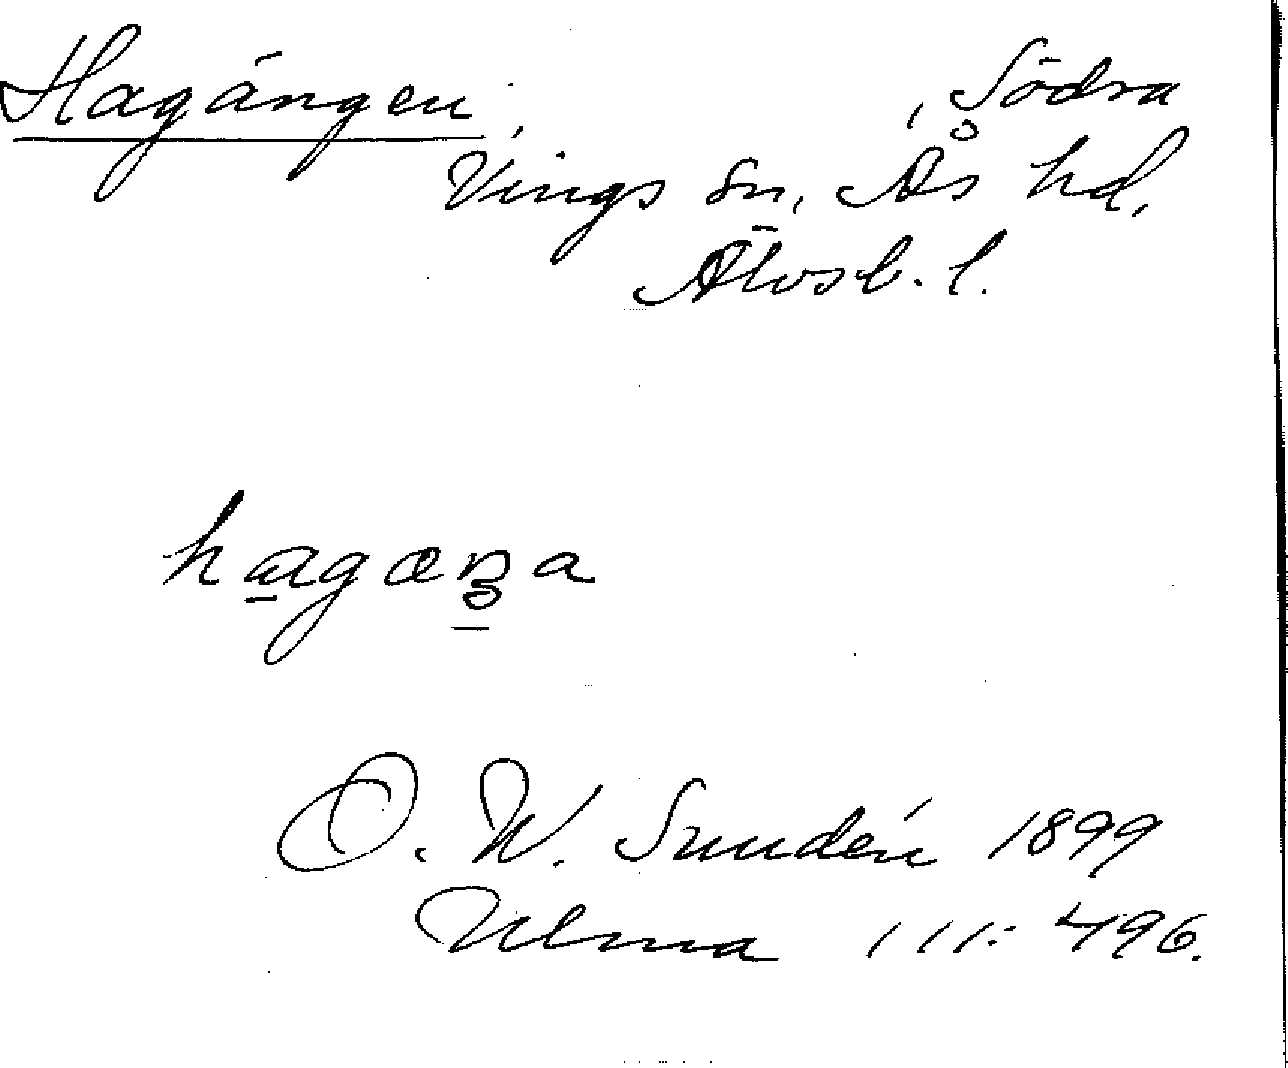 Hagängen, , Södra
Vings sn, Ås hd,
Älvsb. l.
hagæŋa
O. W. Sundén 1899
Ulma 111:496.